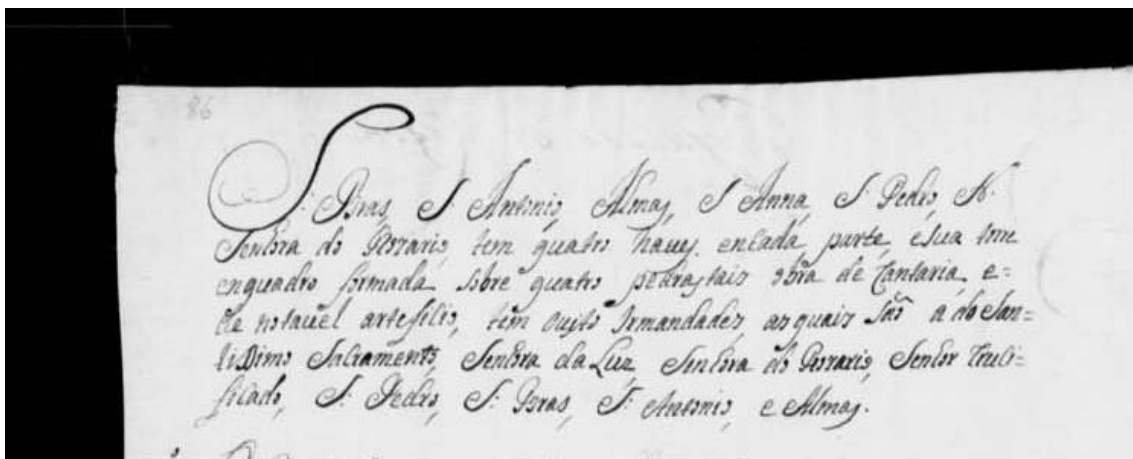 86
S. Bras, S Antonio, Almas, S Anna, S. Pedro, N.
Senhora do Rozario, tem quatro naves. encada parte, esua torre
enquadro formada sobre quatro pedrastais obra de Cantaria, e=
de notauel artefisio, tem ouyto Irmandades, as quais são a do San=
tissimo Sacramento, Senhora da Luz Senhora do Rozario, Senhor Cruci=
ficado, S. Pedro, S. Bras, S. Antonio, e Almas.